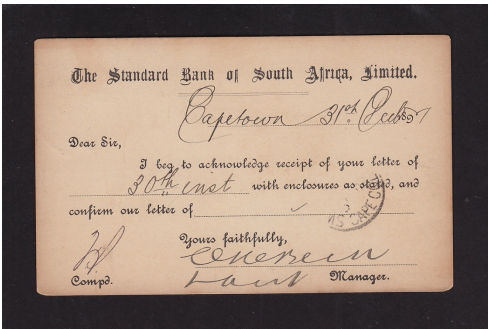 The Standard Bank of South Africa, Limited.
Capetown 31st Decbr 189
Dear Sir,
I beg to acknowledge receipt of your letter of
30th inst with enclosures as stated, and
confirm our letter of
CAPE
Yours faithfully,
Compd. Manager.